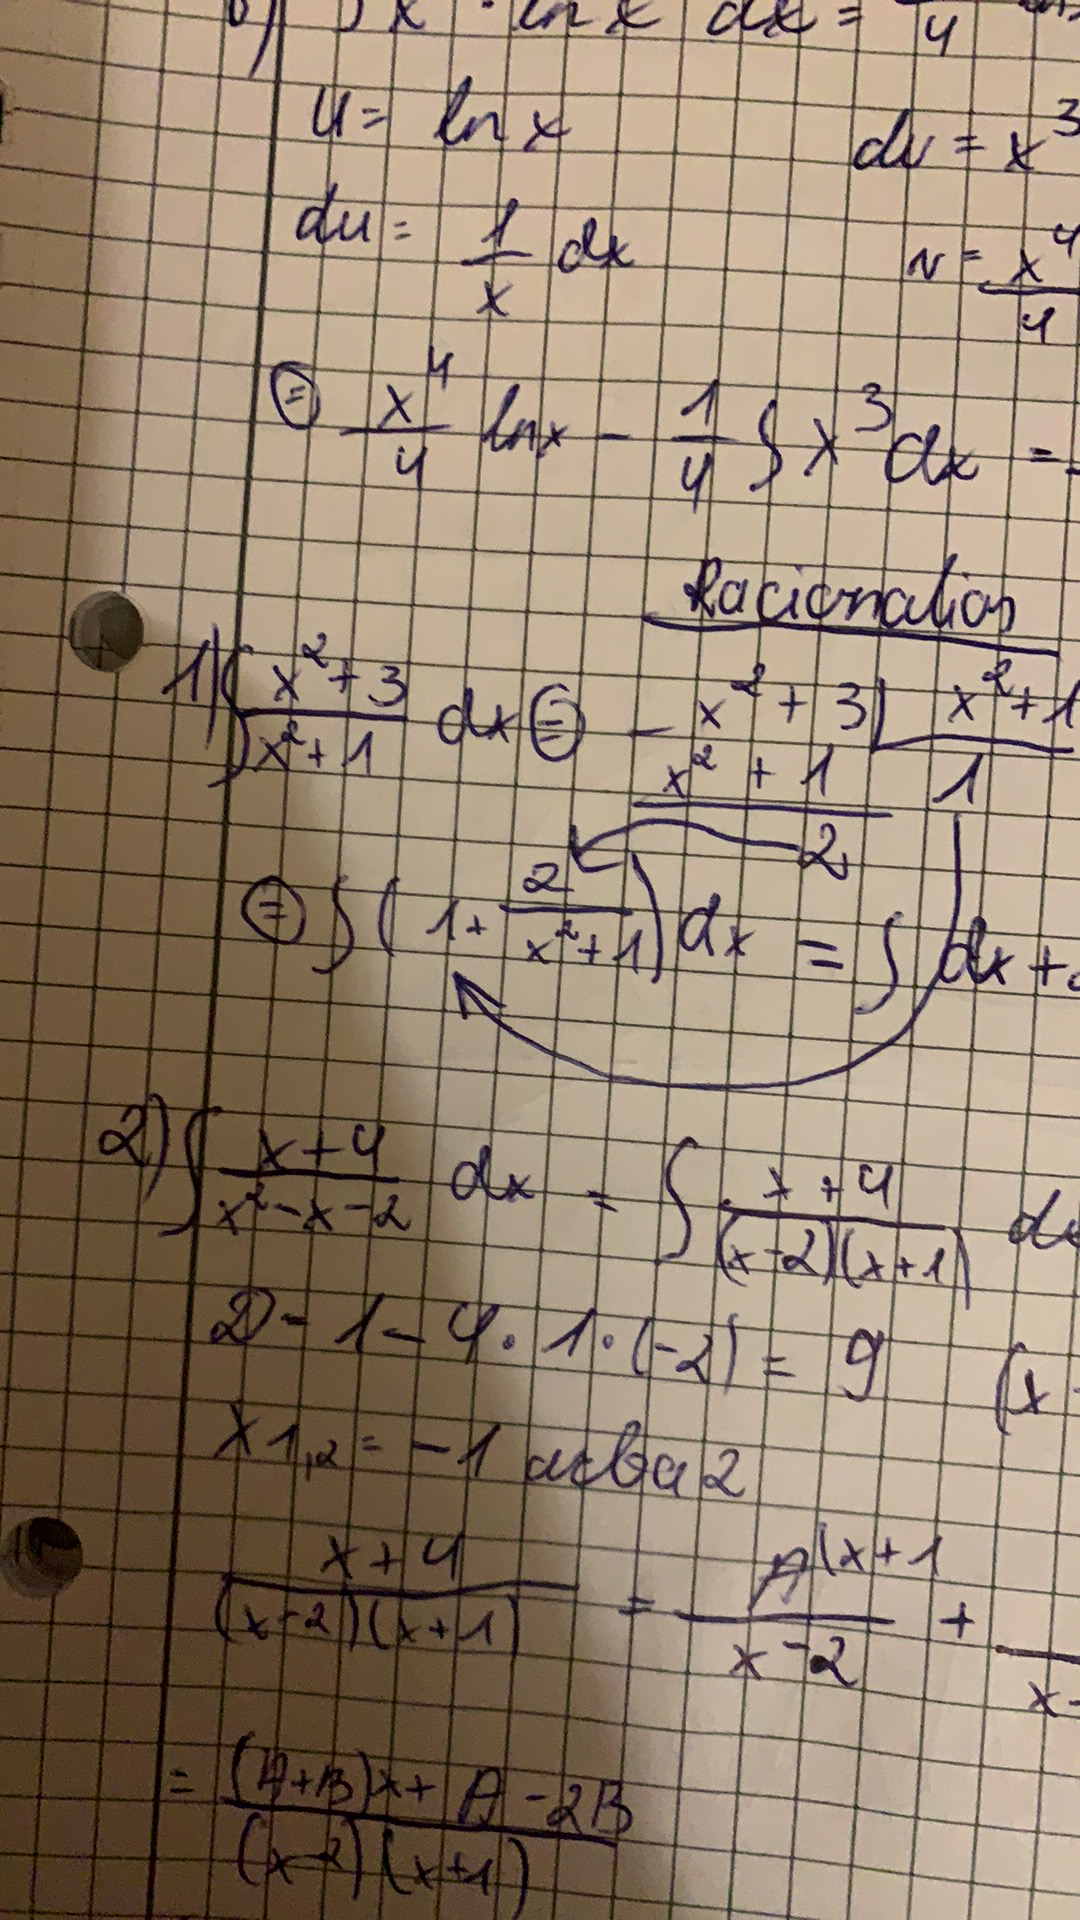 ∫ x³ · ln x dx = 4
u = ln x dv = x³
du = 1/x dx v = x⁴/4
⊜ x⁴/4 ln x - 1/4 ∫ x³ dx =
Racionalios
1) ∫ (x² + 3)/(x² + 1) dx ⊜ - x² + 3 | x² + 1
x² + 1 1
2
⊜ ∫ (1 + 2/(x² + 1)) dx = ∫ dx +
2) ∫ (x + 4)/(x² - x - 2) dx = ∫ (x + 4)/((x - 2)(x + 1)) dx
D - 1 - 4 · 1 · (-2) = 9 (x
x1,2 = -1 arba 2
(x + 4)/((x - 2)(x + 1)) = A(x + 1/(x - 2) + /x -
= ((A + B)x + A - 2B)/((x - 2)(x + 1))